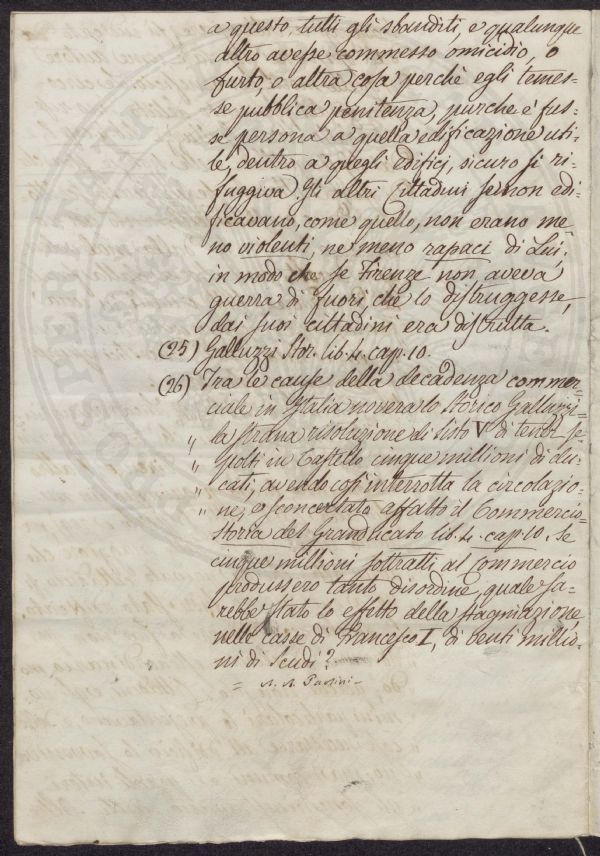 a questo, tutti gli sbanditi, e qualunque
altro avesse commesso omicidio, o
furto, o altra cosa perchè egli temes-
se pubblica penitenza, purche e' fus-
se persona a quella edificazione uti-
le, dentro a quegli edifici, sicuro si ri-
fuggiva. Gli altri Cittadini se non edi-
ficavano, come quello, non erano me-
no violenti, ne meno rapaci di Lui,
in modo che se Firenze non aveva
guerra di fuori che lo distruggesse,
dai suoi cittadini era distrutta.
(25) Galluzzi Stor. lib. 4. cap. 10.
(26) Tra le cause della decadenza commer-
ciale in Italia novera lo storico Galluzzi
la strana risoluzione di Sisto V di tener se-
" polti in Castello cinque millioni di du-
" cati, avendo così interrotta la circolazio-
" ne, e sconcertato affatto il Commercio-
storia del Granducato lib. 4. cap. 10. se
cinque millioni sottratti al Commercio
produssero tanto disordine, quale sa-
rebbe stato lo effetto della stagnazione
nelle casse di Francesco I, di venti millio-
ni di Scudi?
= A. A. Paolini -